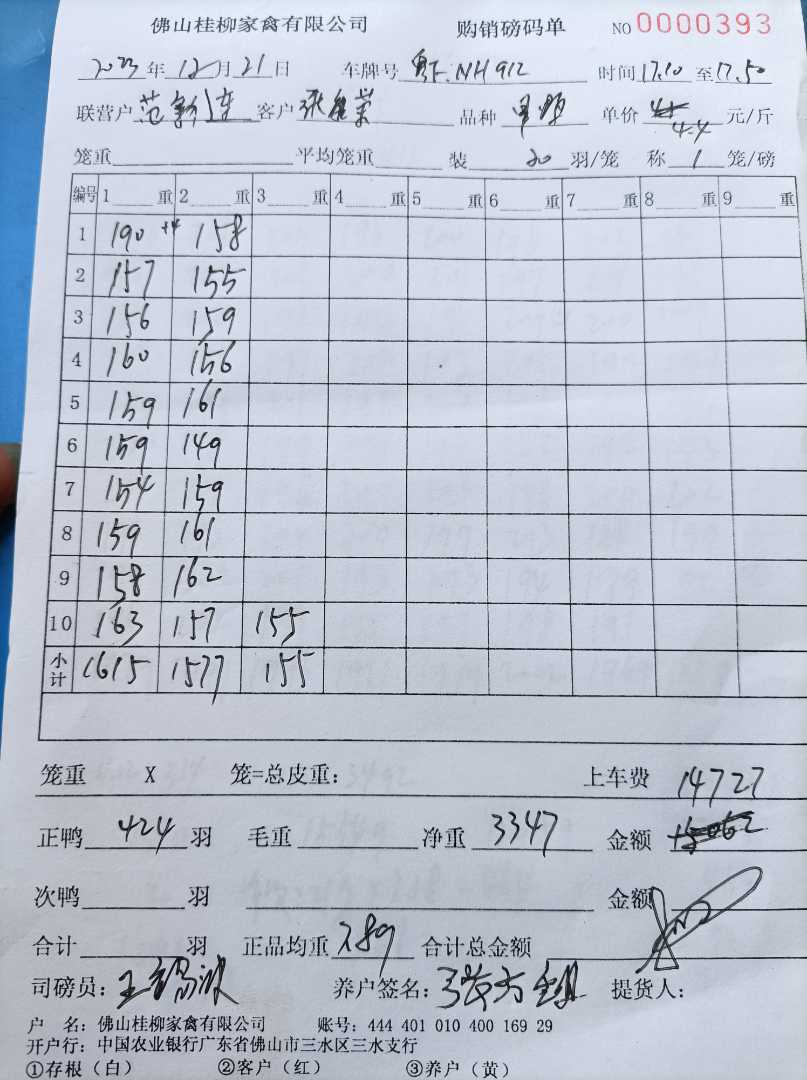 佛山桂柳家禽有限公司 购销磅码单 NO 0000393
2023 年 12 月 21 日 车牌号 粤F.NH912 时间 17.10 至 17.50
联营户 范 客户 张 品种 单价 4.5 4.4 元/斤
笼重 平均笼重 装 20 羽/笼 称 1 笼/磅
编号 1 重 2 重 3 重 4 重 5 重 6 重 7 重 8 重 9 重
1 190 +4 158
2 157 155
3 156 159
4 160 156
5 159 161
6 159 149
7 154 159
8 159 161
9 158 162
10 163 157 155
小计 1615 1577 155
笼重 X 笼=总皮重: 上车费 14727
正鸭 424 羽 毛重 净重 3347 金额 15062
次鸭 羽 金额
合计 羽 正品均重 7.89 合计总金额
司磅员: 王 养户签名: 提货人:
户 名: 佛山桂柳家禽有限公司 账号: 444 401 010 400 169 29
开户行: 中国农业银行广东省佛山市三水区三水支行
①存根(白) ②客户(红) ③养户(黄)